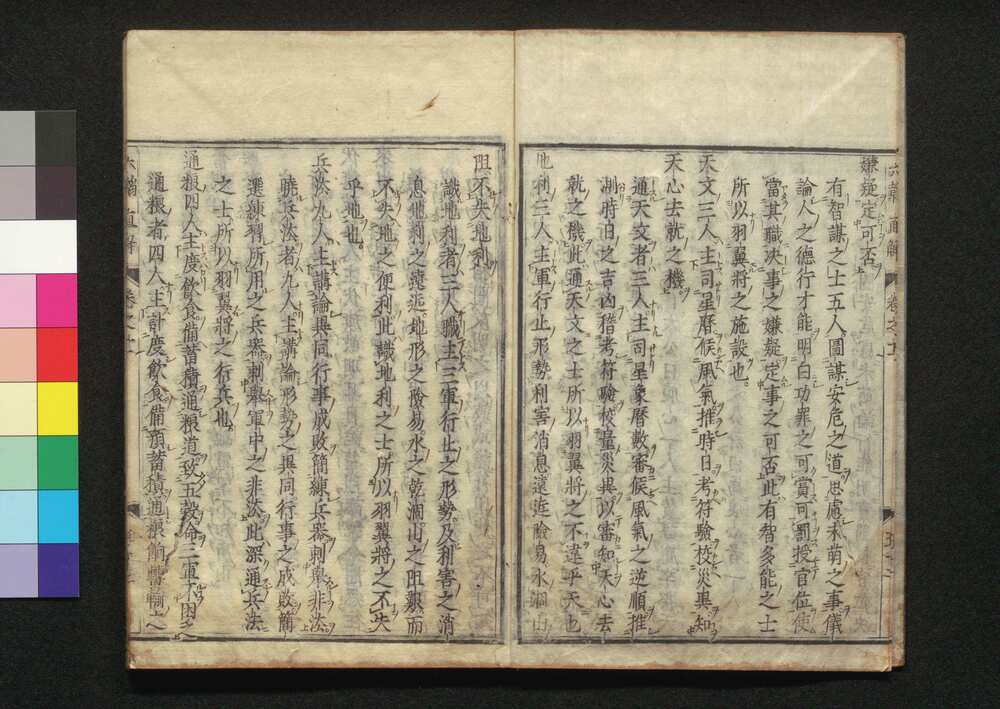 嫌疑定可否
有智謀之士五人圖謀安危之道思慮未萌之事儀
論人之德行才能明白功罪之可賞可罰授官位使
當其職決事之嫌疑定事之可否此有智多能之士
所以羽翼將之施設也
天文三人主司星曆候風氣推時日考符驗校災異知
天心去就之機
通天文者三人主司星象曆數審候風氣之逆順推
測時日之吉凶稽考符驗校量災異以審知天心去
就之機此通天文之士所以羽翼將之不違乎天也
地利三人主軍行止形勢利害消息遠近險易水涸山
阻不失地利
識地利者三人職主三軍行止之形勢及利害之消
息地利之遠近地形之險易水之乾涸山之阻艱而
不失地之便利此識地利之士所以羽翼將之不失
乎地也
兵法九人主講論異同行事成敗簡練兵器刺舉非法
曉兵法者九人主講論形勢之異同行事之成敗簡
選練習所用之兵器刺舉軍中之非法此深通兵法
之士所以羽翼將之行兵也
通粮四人主度飲食備蓄積通粮道致五穀命三軍不困乏
通粮者四人主計度飲食備預蓄積通粮餉
六韜直解